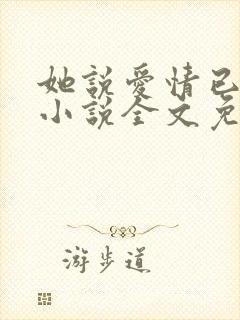 她説愛情已
小説全文免
游步道